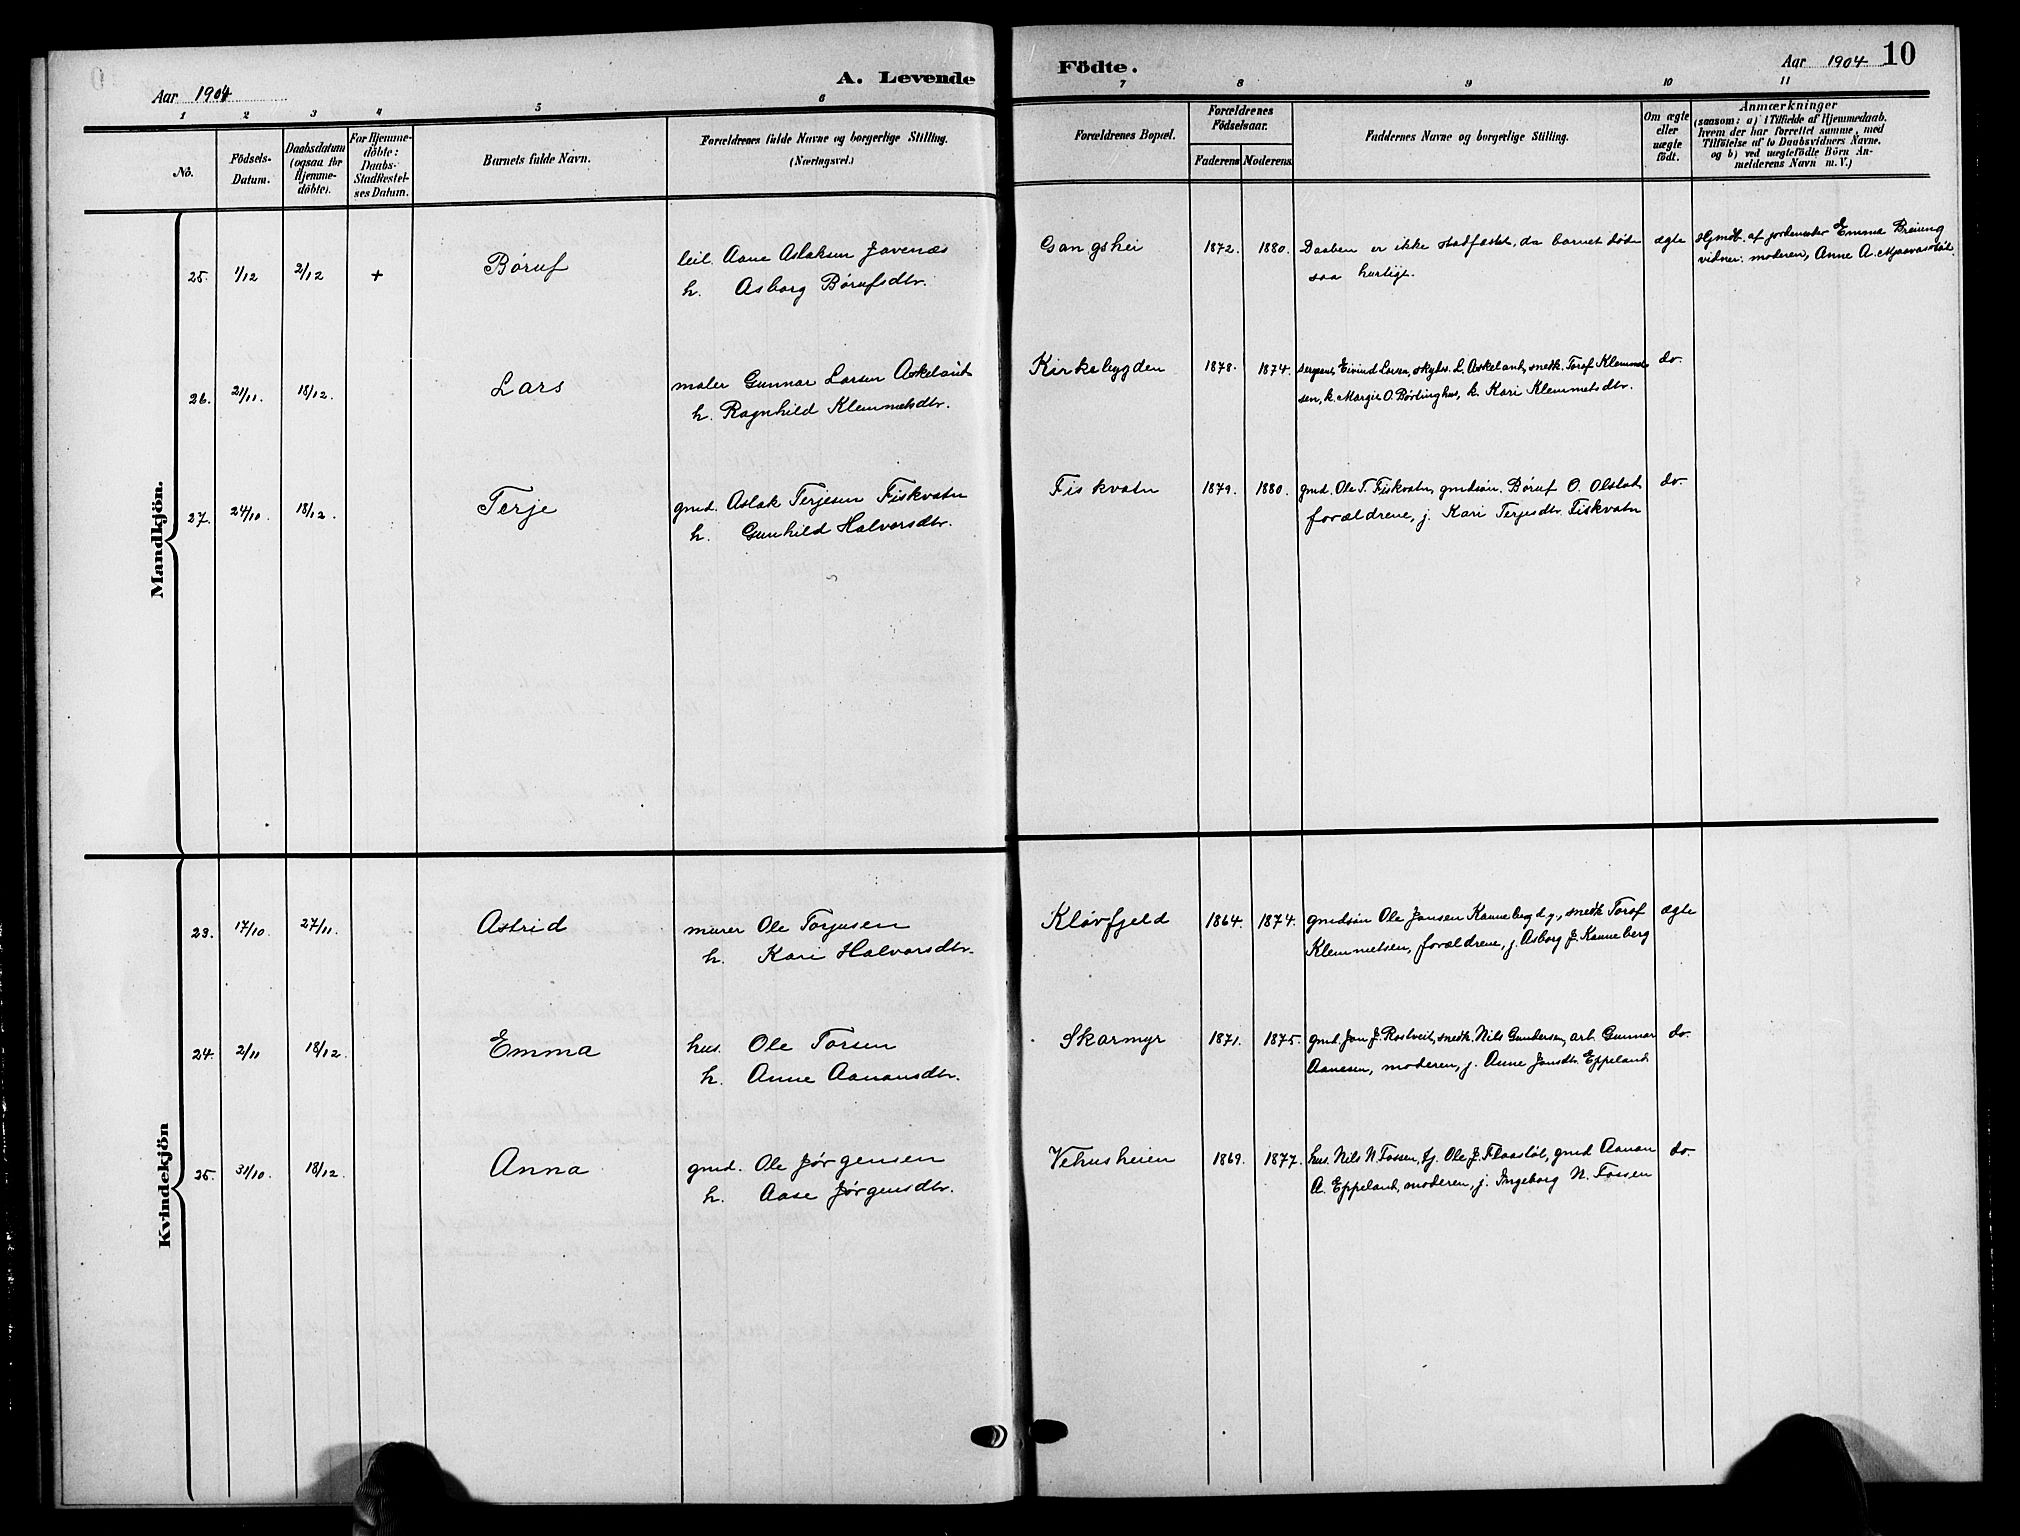 Aar 1904
A. Levende
Födte.
Aar 1904
10
1 2 3 4 5 6
7 8 9 10 11
No.
Födsels-
Datum.
Daabsdatum
(ogsaa for
Hjemme-
döbte).
For Hjemme-
döbte:
Daabs-
Stadfæstel-
ses Datum.
Barnets fulde Navn.
Forældrenes fulde Navne og borgerlige Stilling.
(Næringsvei.)
Forældrenes Bopæl.
Forældrenes
Födselsaar.
Faderens Moderens.
Faddernes Navne og borgerlige Stilling.
Om ægte
eller
uægte
født.
Anmærkninger
(saasom: a) i Tilfælde af Hjemmedaab.
hvem der har forrettet samme, med
Tilføielse af to Daabsvidners Navne,
og b) ved uægtefødte Börn An-
melderens Navn m. V.)
Mandkjön.
25. 1/12 2/12 + Børuf
leil. Aane Aslaksen Jovenæs
h. Asborg Børufsdtr.
Gangshei 1872. 1880.
Daaben er ikke stadfæstet, da barnet døde
saa hurtigt.
ægte
Hjmdt. af jordemoder Emma Breiung
vidner: moderen, Anne A.
26. 21/11. 18/12. Lars
maler Gunnar Larsen Askeland
h. Ragnhild Klemmetsdtr.
Kirkebygden 1878. 1874.
sergeant Eivind Larsen, skyds. L. Askeland, snedk. Toraf Klemmet-
sen, k. Margit O. Børtinghus, k. Kari Klemmetsdtr.
do.
27. 24/10. 18/12. Terje
gmd. Aslak Terjesen Fiskvatn
h. Gunhild Halvorsdtr.
Fiskvatn 1879. 1880.
gmd. Ole T. Fiskvatn, gmdsøn. Børuf O. Olstad,
forældrene, j. Kari Terjesdtr. Fiskvatn
do.
Kvindekjön
23. 17/10. 27/11. Astrid
murer Ole Torjusen
h. Kari Halvorsdtr.
Kløvfjeld 1864. 1874.
gmdsøn Ole Jansen Kanneberg d.y., snedk Toraf
Klemmetsen, forældrene, j. Asborg J. Kanneberg
ægte
24. 2/11 18/12. Emma
hus. Ole Torsen
h. Anne Aanansdtr.
Skarmyr 1871. 1875.
gmd. Jon J. Rostveit, snedk. Nils Gundersen, arb. Gunnar
Aanesen, moderen, j. Anne Jansdtr. Eppeland
do.
25. 31/10. 18/12. Anna
gmd. Ole Jørgensen
h. Aase Jørgensdtr.
Vehusheien 1869. 1877.
hus. Nils N. Fossen, tj. Ole J. Flaastøl, gmd Aanan
A. Eppeland, moderen, j. Ingeborg N. Fossen
do.